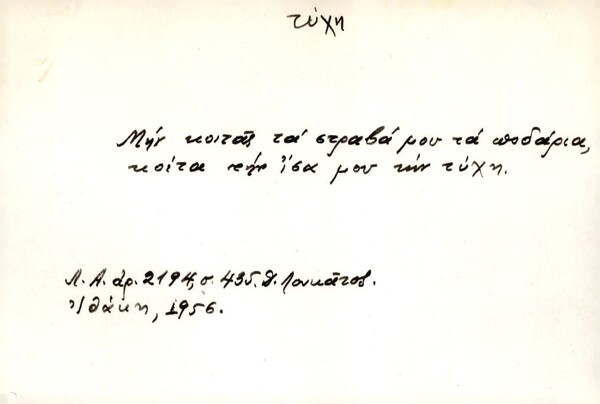 τύχη
Μήν κοιτᾷς τά στραβά μου τά ποδάρια,
κοίτα τήν ἴσα μου τήν τύχη.
Λ. Α. ἀρ. 2194, σ. 435, Δ. Λουκᾶτος.
Ἰθάκη, 1956.